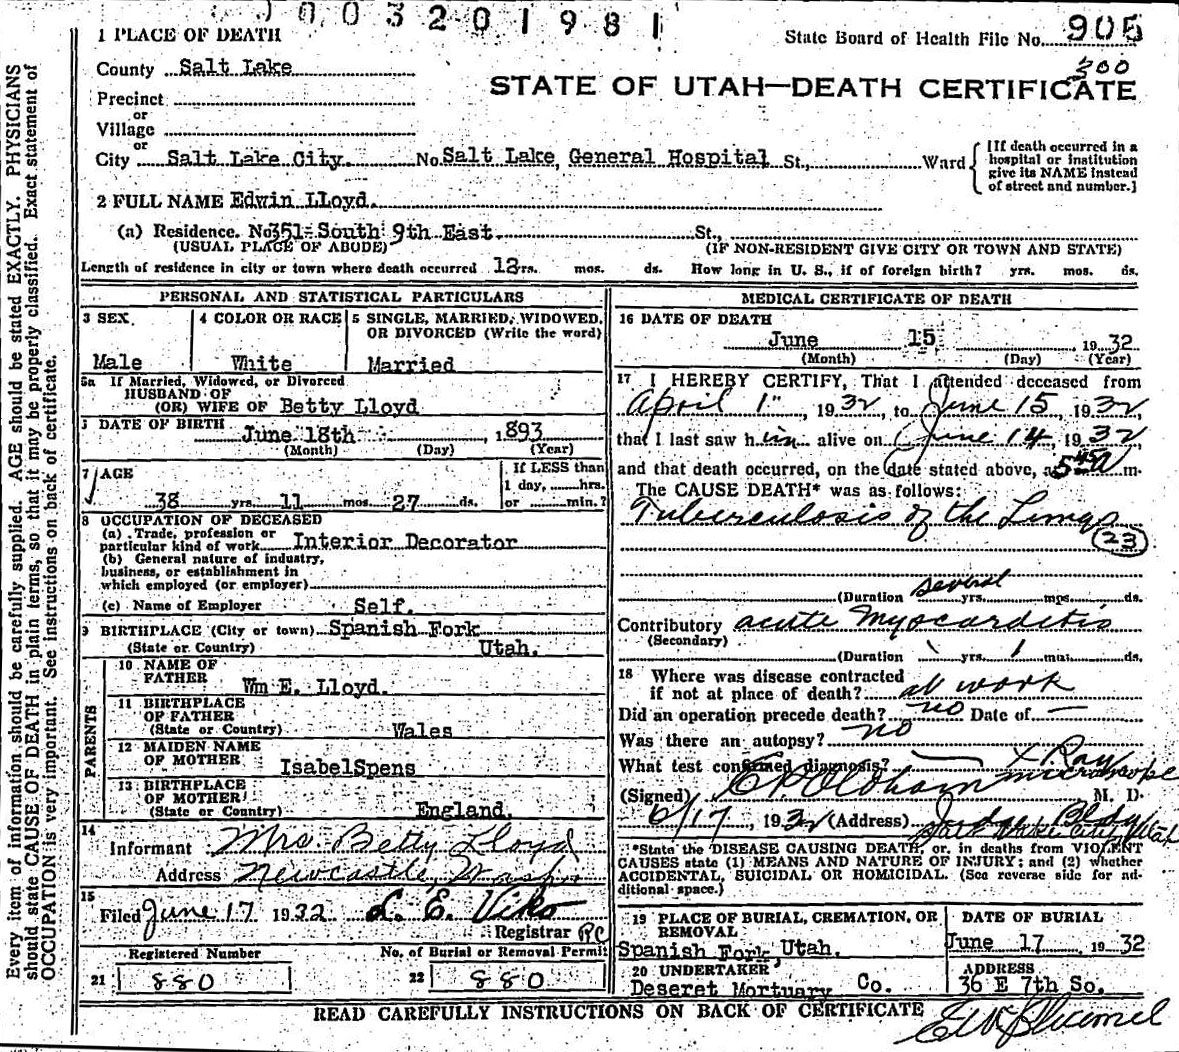 003201981
1 PLACE OF DEATH
State Board of Health File No. 905
300
County Salt Lake
STATE OF UTAH—DEATH CERTIFICATE
Precinct
or
Village
or
City Salt Lake City. No. Salt Lake, General Hospital St., Ward
[If death occurred in a hospital or institution give its NAME instead of street and number.]
2 FULL NAME Edwin LLoyd.
(a) Residence. No. 351 South 9th East. St.,
(USUAL PLACE OF ABODE) (IF NON-RESIDENT GIVE CITY OR TOWN AND STATE)
Length of residence in city or town where death occurred 12 yrs. mos. ds. How long in U. S., if of foreign birth? yrs. mos. ds.
PERSONAL AND STATISTICAL PARTICULARS
3 SEX 4 COLOR OR RACE 5 SINGLE, MARRIED, WIDOWED, OR DIVORCED (Write the word)
Male White Married
5a If Married, Widowed, or Divorced
HUSBAND OF
(OR) WIFE OF Betty Lloyd
DATE OF BIRTH
June 18th , 1893
(Month) (Day) (Year)
7 AGE If LESS than
1 day, hrs.
38 yrs. 11 mos. 27 ds. or min.?
8 OCCUPATION OF DECEASED
(a) Trade, profession or
particular kind of work Interior Decorator
(b) General nature of industry,
business, or establishment in
which employed (or employer)
(c) Name of Employer Self.
9 BIRTHPLACE (City or town) Spanish Fork
(State or Country) Utah.
PARENTS
10 NAME OF
FATHER Wm E. Lloyd.
11 BIRTHPLACE
OF FATHER
(State or Country) Wales
12 MAIDEN NAME
OF MOTHER IsabelSpens
13 BIRTHPLACE
OF MOTHER
(State or Country) England.
14
Informant Mrs. Betty Lloyd
Address Newcastle, Wash.
15
Filed June 17 1932 L. E. Viko
Registrar
Registered Number No. of Burial or Removal Permit
21 880 22 880
MEDICAL CERTIFICATE OF DEATH
16 DATE OF DEATH
June 15 , 1932
(Month) (Day) (Year)
17 I HEREBY CERTIFY, That I attended deceased from
April 1" , 1932, to June 15 1932,
that I last saw him alive on June 14, 1932
and that death occurred, on the date stated above, at 5 45 a m.
The CAUSE DEATH* was as follows:
Tuberculosis of the Lungs
23
(Duration several yrs. mos. ds.
Contributory acute Myocarditis
(Secondary)
(Duration yrs. 1 mos. ds.
18 Where was disease contracted
if not at place of death? at work
Did an operation precede death? no Date of —
Was there an autopsy? no
What test confirmed diagnosis? X Ray
microscope
(Signed) M. D.
6/17, 1932 (Address) Bldg
Salt Lake City Utah
*State the DISEASE CAUSING DEATH, or, in deaths from VIOLENT
CAUSES state (1) MEANS AND NATURE OF INJURY; and (2) whether
ACCIDENTAL, SUICIDAL OR HOMICIDAL. (See reverse side for ad-
ditional space.)
19 PLACE OF BURIAL, CREMATION, OR REMOVAL DATE OF BURIAL
Spanish Fork, Utah. June 17 1932
20 UNDERTAKER ADDRESS
Deseret Mortuary Co. 36 E 7th So.
READ CAREFULLY INSTRUCTIONS ON BACK OF CERTIFICATE
Every item of information should be carefully supplied. AGE should be stated EXACTLY. PHYSICIANS
should state CAUSE OF DEATH in plain terms, so that it may be properly classified. Exact statement of
OCCUPATION is very important. See instructions on back of certificate.